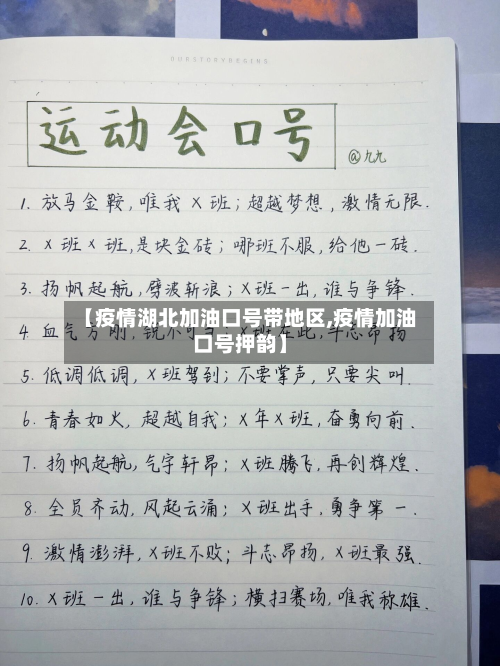 OURSTORYBEGINS
运动会口号
@九九
1. 放马金鞍，唯我X班；超越梦想，激情无限.
2. X班X班,是块金砖；哪班不服,给他一砖.
3. 扬帆起航,劈波斩浪；X班一出,谁与争锋.
【疫情湖北加油口号带地区,疫情加油
4. 血气方刚,锐不可当；X班在此,斗志昂扬
口号押韵】
5. 低调低调,X班驾到；不要掌声,只要尖叫.
6. 青春如火,超越自我；X年X班,奋勇向前.
7. 扬帆起航,气宇轩昂；X班腾飞,再创辉煌.
8. 全员齐动,风起云涌；X班出手,勇争第一.
9. 激情澎湃,X班不败；斗志昂扬,X班最强.
10. X班一出,谁与争锋；横扫赛场,唯我称雄.